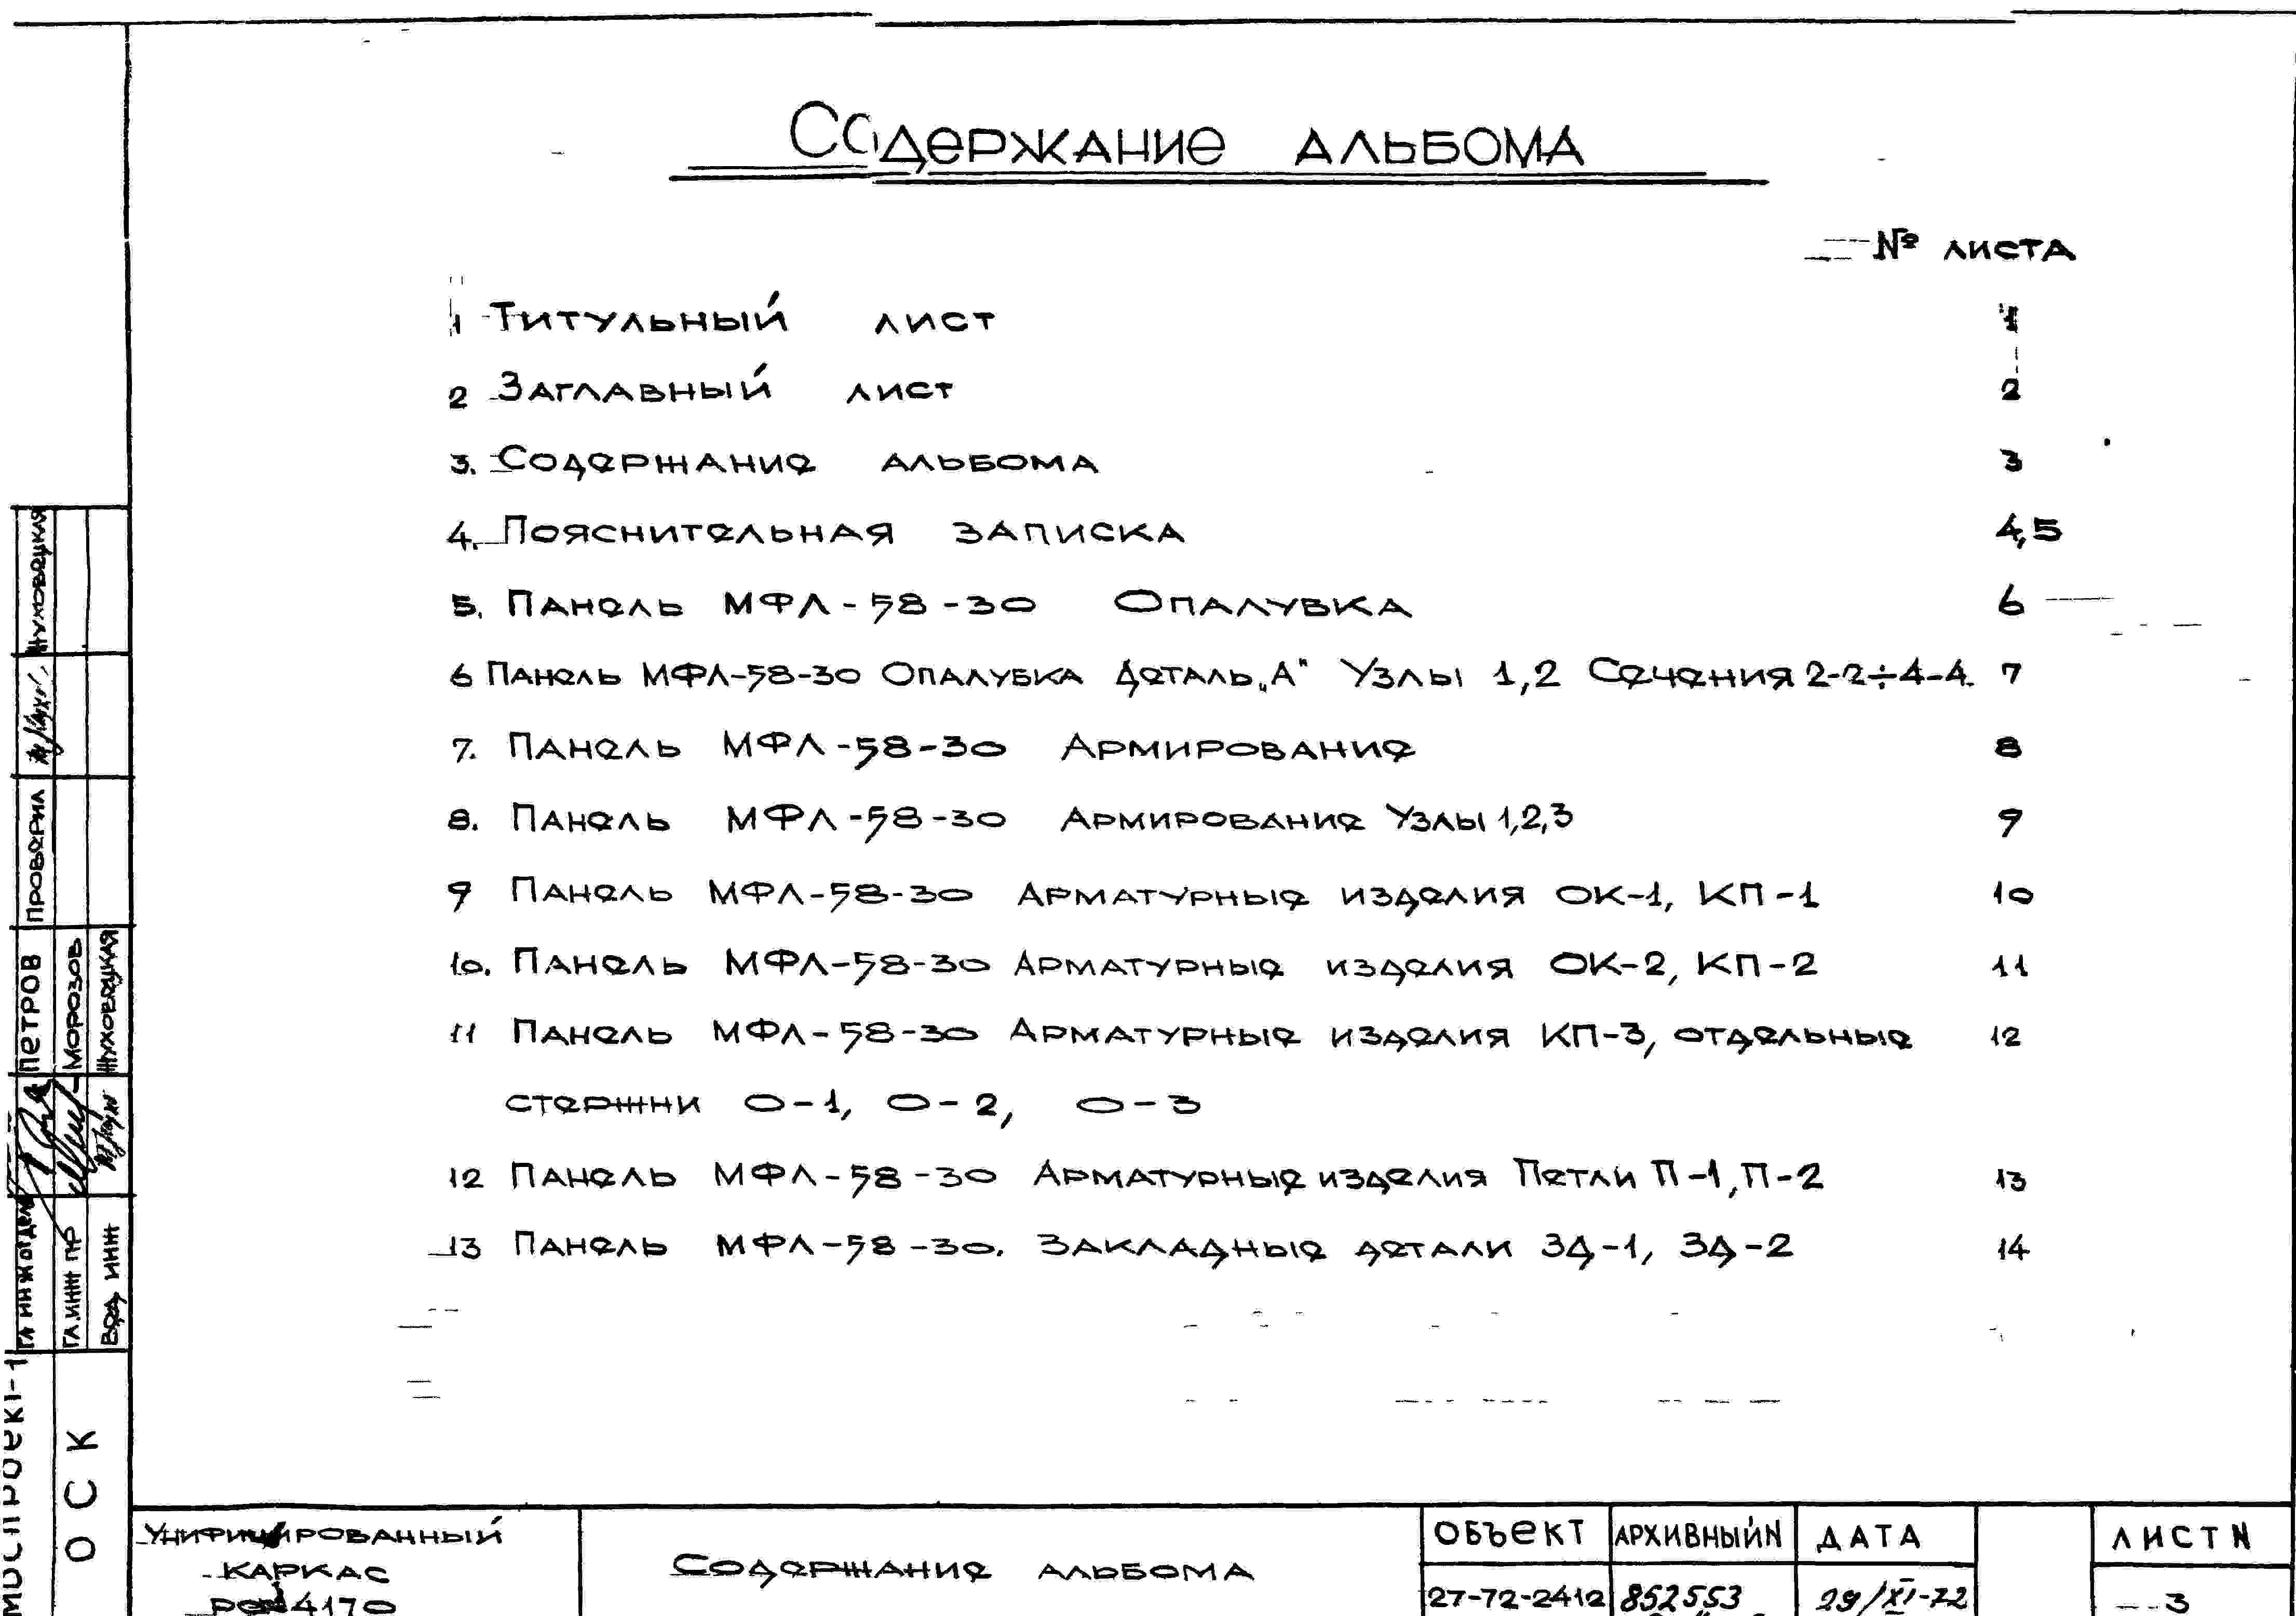 Содержание альбома
№ листа
1 Титульный лист 1
2 Заглавный лист 2
3. Содержание альбома 3
4. Пояснительная записка 4,5
5. Панель МФЛ-58-30 Опалубка 6
6 Панель МФЛ-58-30 Опалубка Деталь „А" Узлы 1,2 Сечения 2-2÷4-4. 7
7. Панель МФЛ-58-30 Армирование 8
8. Панель МФЛ-58-30 Армирование Узлы 1,2,3 9
9 Панель МФЛ-58-30 Арматурные изделия ОК-1, КП-1 10
10. Панель МФЛ-58-30 Арматурные изделия ОК-2, КП-2 11
11 Панель МФЛ-58-30 Арматурные изделия КП-3, отдельные 12
стержни О-1, О-2, О-3
12 Панель МФЛ-58-30 Арматурные изделия Петли П-1, П-2 13
13 Панель МФЛ-58-30. Закладные детали ЗД-1, ЗД-2 14
Моспроект-1
ОСК
Гл инж отдела Петров Проверил Жуховецкая
Гл.инж пр Морозов
Вед инж Жуховецкая
Унифицированный
каркас
4170
Содержание альбома
Объект Архивный N Дата Лист N
27-72-2412 852553 29/XI-72 3